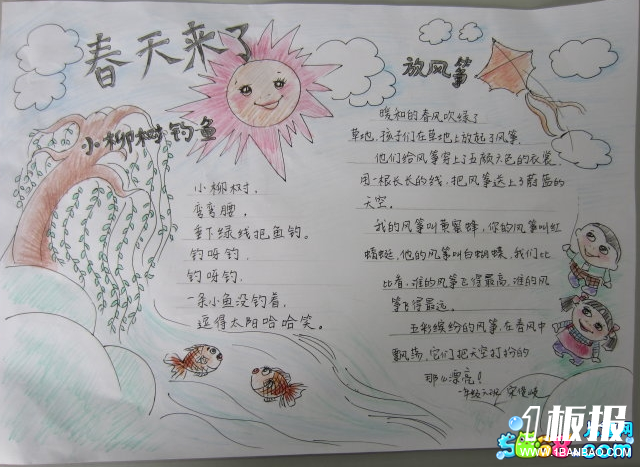 春天来了
小柳树钓鱼
小柳树，
弯弯腰，
垂下绿线把鱼钓。
钓呀钓，
钓呀钓，
一条小鱼没钓着，
逗得太阳哈哈笑。
放风筝
暖和的春风吹绿了
草地，孩子们在草地上放起了风筝。
他们给风筝穿上了五颜六色的衣裳
用一根长长的线，把风筝送上了蔚蓝的
天空。
我的风筝叫黄蜜蜂，你的风筝叫红
蜻蜓，他的风筝叫白蝴蝶，我们比
比看，谁的风筝飞得最高，谁的风
筝飞得最远。
五彩缤纷的风筝，在春风中
飘荡，它们把天空打扮的
那么漂亮！
一年级六班
1板报
WWW.1BANBAO.COM